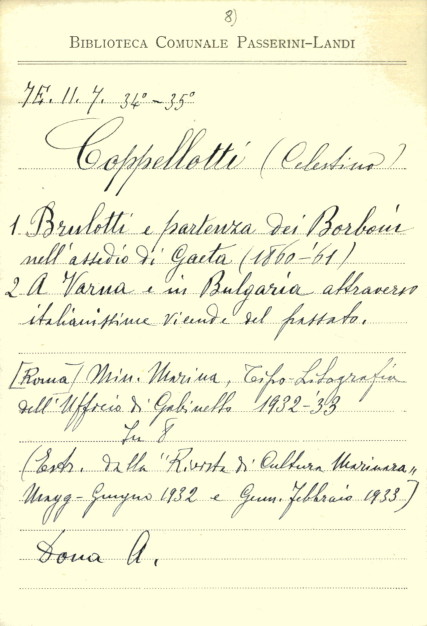 8)
BIBLIOTECA COMUNALE PASSERINI-LANDI
7E. 11. 7. 34° - 35°
Coppellotti (Celestino)
1 Brulotti e partenza dei Borboni
nell'assedio di Gaeta (1860-'61)
2 A Varna e in Bulgaria attraverso
italianissime vicende del passato.
[Roma] Min. Marina, Tipo-Litografia
dell'Ufficio di Gabinetto 1932-'33
In 8
(Estr. dalla "Rivista di Cultura Marinara"
Magg-Giugno 1932 e Genn. Febbraio 1933)
Dona A.